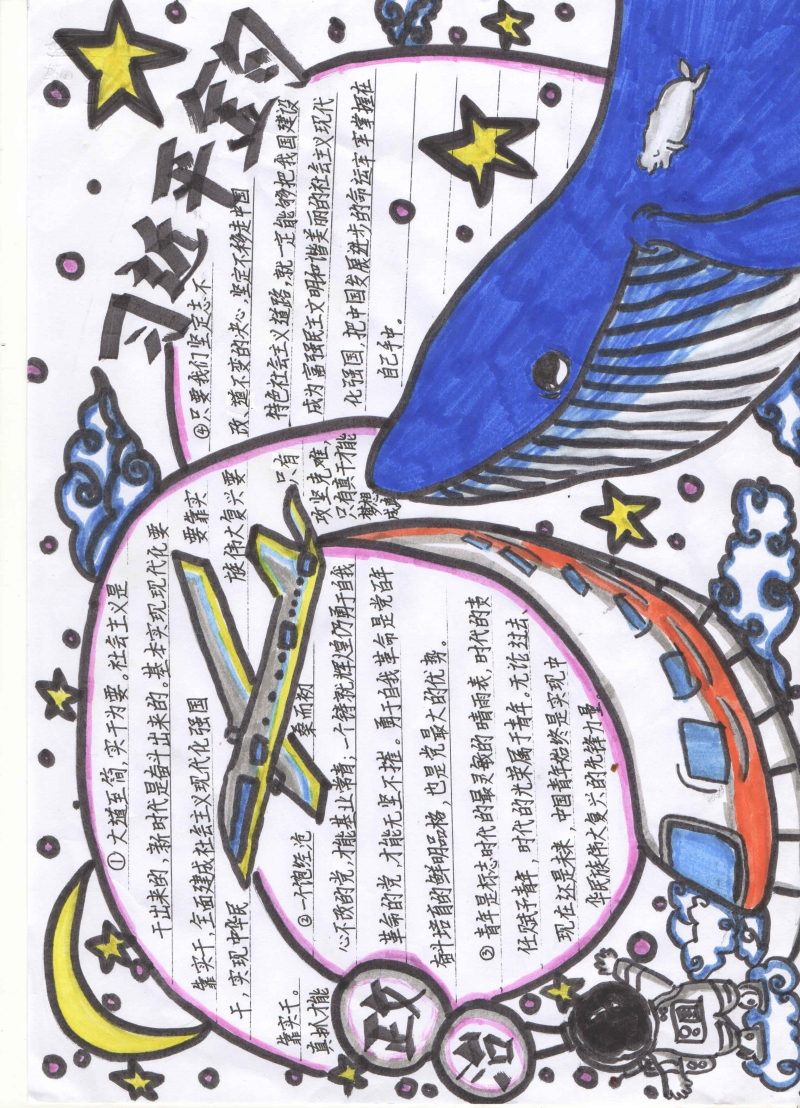 习达天空
治政
①大道至简,实干为要。社会主义是
干出来的,新时代是奋斗出来的。基本实现现代化要
要靠实
靠实干,全面建成社会主义现代化强国
族伟大复兴要
干,实现中华民
只有
靠实干。
攻坚克难,
真抓才能
只有真干才能
梦想
成真
②一个饱经沧
桑而初
心不改的党,才能基业常青;一个铸就辉煌仍勇于自我
革命的党,才能无坚不摧。勇于自我革命是党百年
奋斗培育的鲜明品格,也是党最大的优势。
③青年是标志时代的最灵敏的晴雨表,时代的责
任赋予青年,时代的光荣属于青年。无论过去、
现在还是未来,中国青年始终是实现中
华民族伟大复兴的先锋力量。
④只要我们坚定志不
改、道不变的决心,坚定不移走中国
特色社会主义道路,就一定能够把我国建设
成为富强民主文明和谐美丽的社会主义现代
化强国,把中国发展进步的命运牢牢掌握在
自己手中。